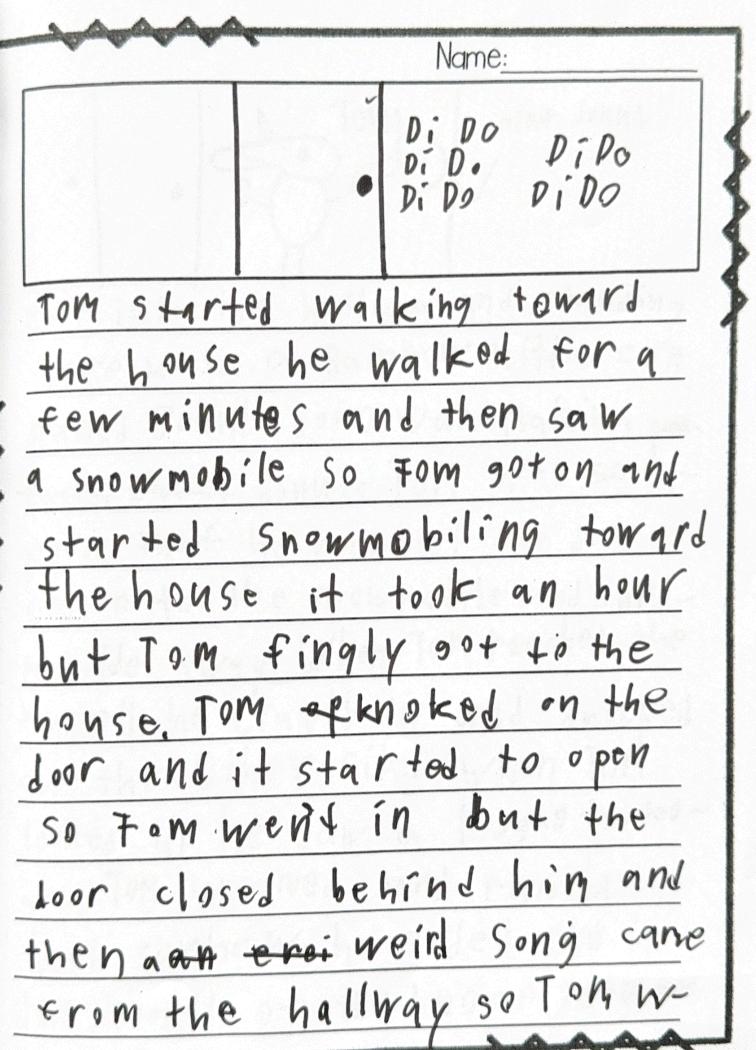 Name:
Di Do
Di Do
Di Do
Di Do
Di Do
Tom started walking toward
the house he walked for a
few minutes and then saw
a snowmobile so Tom got on and
started snowmobiling toward
the house it took an hour
but Tom fingly got to the
house. Tom knoked on the
door and it started to open
so Tom went in but the
door closed behind him and
then a weird song came
from the hallway so Tom w-